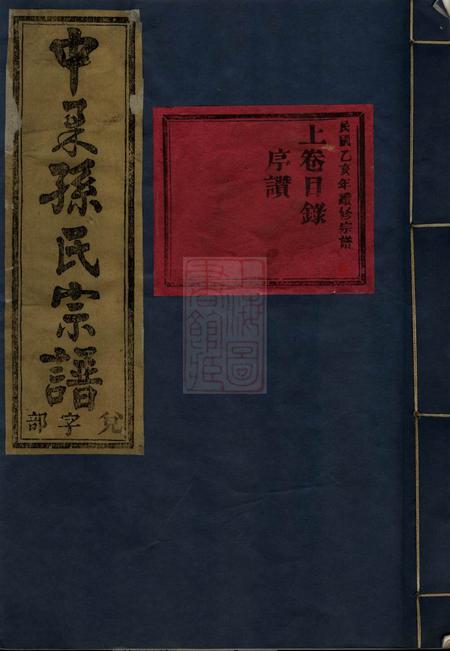 中孫氏宗譜
兌字部
民國乙亥年續修宗譜
上卷目錄
序讚
上海圖
書館藏